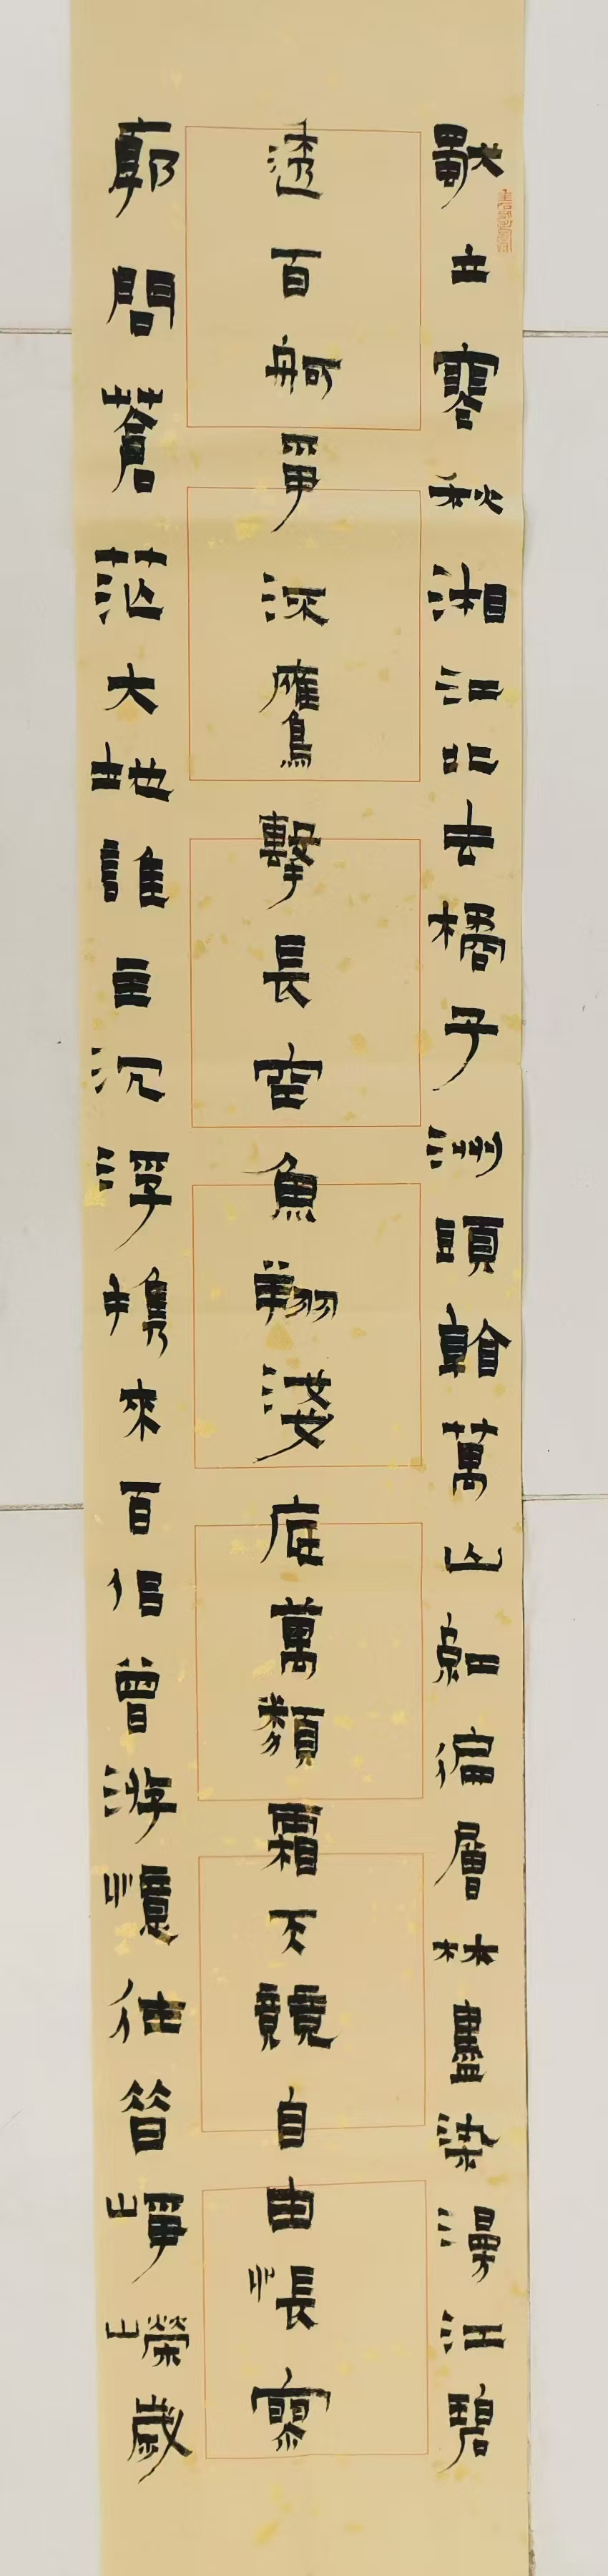 獨立寒秋湘江北去橘子洲頭看萬山紅徧層林盡染漫江碧
透百舸爭流鷹擊長空魚翔淺底萬類霜天競自由悵寥
廓問蒼茫大地誰主沉浮携來百侣曾游憶往昔崢嶸歲